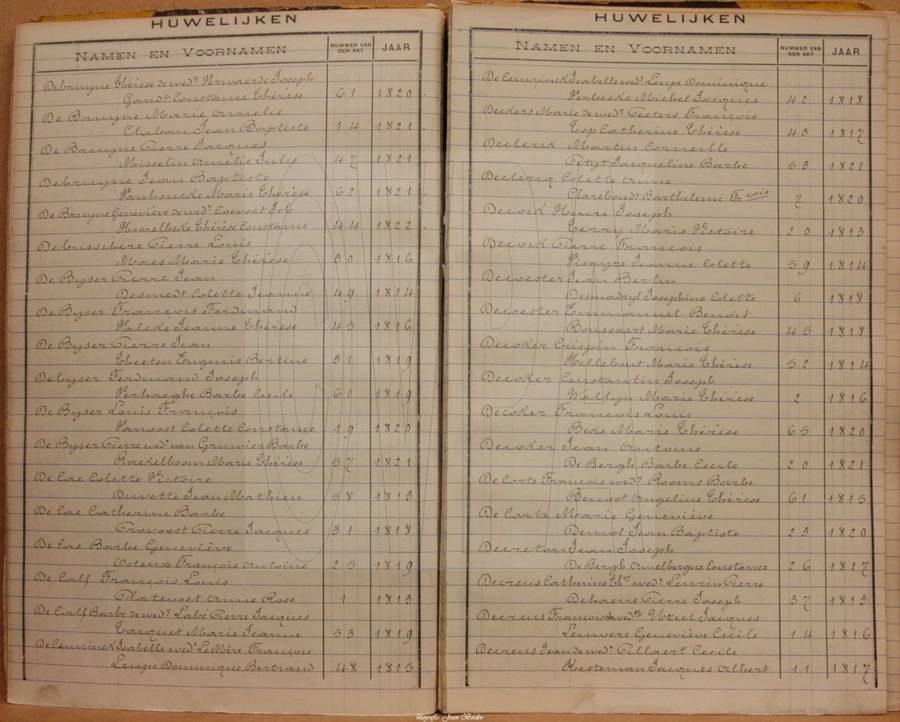 HUWELIJKEN
NAMEN EN VOORNAMEN NUMMER VAN DEN AKT JAAR
Debruyne Thérèse de wed. Joseph
Gandt Constance Thérèse 61 1820
De Bruyne Marie Amelie
Jean Baptiste 14 1821
De Bruyne Pierre Jacques
Misselin Amelie Julie 47 1821
Debruyne Jean Baptiste
Marie Thérèse 62 1821
De Bruyne Geneviève de wed. Job
Thérèse Constance 44 1822
Debusschere Pierre Louis
Maes Marie Thérèse 30 1816
De Byser Pierre Jean
Desmedt Colette Jeanne 49 1814
De Byser François Ferdinand
Valcke Jeanne Thérèse 45 1816
De Byser Pierre Jean
Theeten Eugenie Bertine 31 1819
Debyser Ferdinand Joseph
Verhaeghe Barbe Cecile 61 1819
De Byser Louis François
Colette Constance 19 1820
De Byser Pierre wed. van Barbe
Marie Thérèse 57 1821
De Cae Colette Victoire
Duvette Jean Mathieu 58 1813
De Cae Catherine Barbe
Provoost Pierre Jacques 31 1818
De Cae Barbe Geneviève
François Antoine 25 1819
De Calf François Louis
Anne Rose 1 1813
De Calf Barbe de wed. Labé Pierre Jacques
Tacquet Marie Jeanne 53 1819
De Ceuninck Isabelle wed. François
Leupe Dominique Bertrand 48 1815
HUWELIJKEN
NAMEN EN VOORNAMEN NUMMER VAN DEN AKT JAAR
De Ceuninck Isabelle wed. Leupe Dominique
Verbeeke Michel Jacques 42 1818
Marie de wed. Peeters François
Top Catherine Thérèse 43 1817
Declerck Martin Corneille
Jacqueline Barbe 53 1821
Declercq Colette Anne
Clareboudt Barthelemi 7 1820
Henri Joseph
Marie Victoire 20 1813
Pierre François
Jeanne Colette 59 1814
Decoester Jean Bertin
Demadryl Josephine Colette 6 1818
Decoester Emmanuel Benoit
Boussaert Marie Thérèse 45 1818
Decoker Crispin François
Hillebout Marie Thérèse 52 1814
Decoker Constantin Joseph
Marie Thérèse 2 1816
Decoker François Louis
Marie Thérèse 65 1820
Decoker Jean Antoine
De Bergh Barbe Cecile 20 1821
De Corte François wed. Rooms Barbe
Benoot Angeline Thérèse 61 1815
De Corte Marie Geneviève
Demol Jean Baptiste 23 1820
Decreton Jean Joseph
De Bergh Constance 26 1817
Decreus Catherine wed. Pierre
Dehaene Pierre Joseph 37 1813
Decreus François wed. Jacques
Leuwers Geneviève Cecile 14 1816
Decreus Jean de wed. Pillaert Cecile
Hosteman Jacques Albert 11 1817